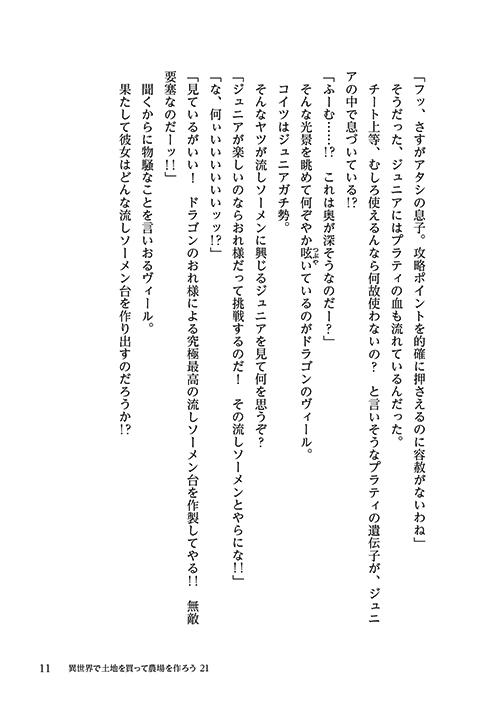 「フッ、さすがアタシの息子。攻略ポイントを的確に押さえるのに容赦がないわね」
そうだった、ジュニアにはプラティの血も流れているんだった。
チート上等、むしろ使えるんなら何故使わないの？　と言いそうなプラティの遺伝子が、ジュニ
アの中で息づいている!?
「ふーむ……!?　これは奥が深そうなのだー？」
そんな光景を眺めて何ぞやか呟いているのがドラゴンのヴィール。
つぶや
コイツはジュニアガチ勢。
そんなヤツが流しソーメンに興じるジュニアを見て何を思うぞ？
「ジュニアが楽しいのならおれ様だって挑戦するのだ！　その流しソーメンとやらにな!!」
「な、何ぃいいいいいいッッ!?」
「見ているがいい！　ドラゴンのおれ様による究極最高の流しソーメン台を作製してやる!!　無敵
要塞なのだーッ!!」
聞くからに物騒なことを言いおるヴィール。
果たして彼女はどんな流しソーメン台を作り出すのだろうか!?
11　異世界で土地を買って農場を作ろう 21